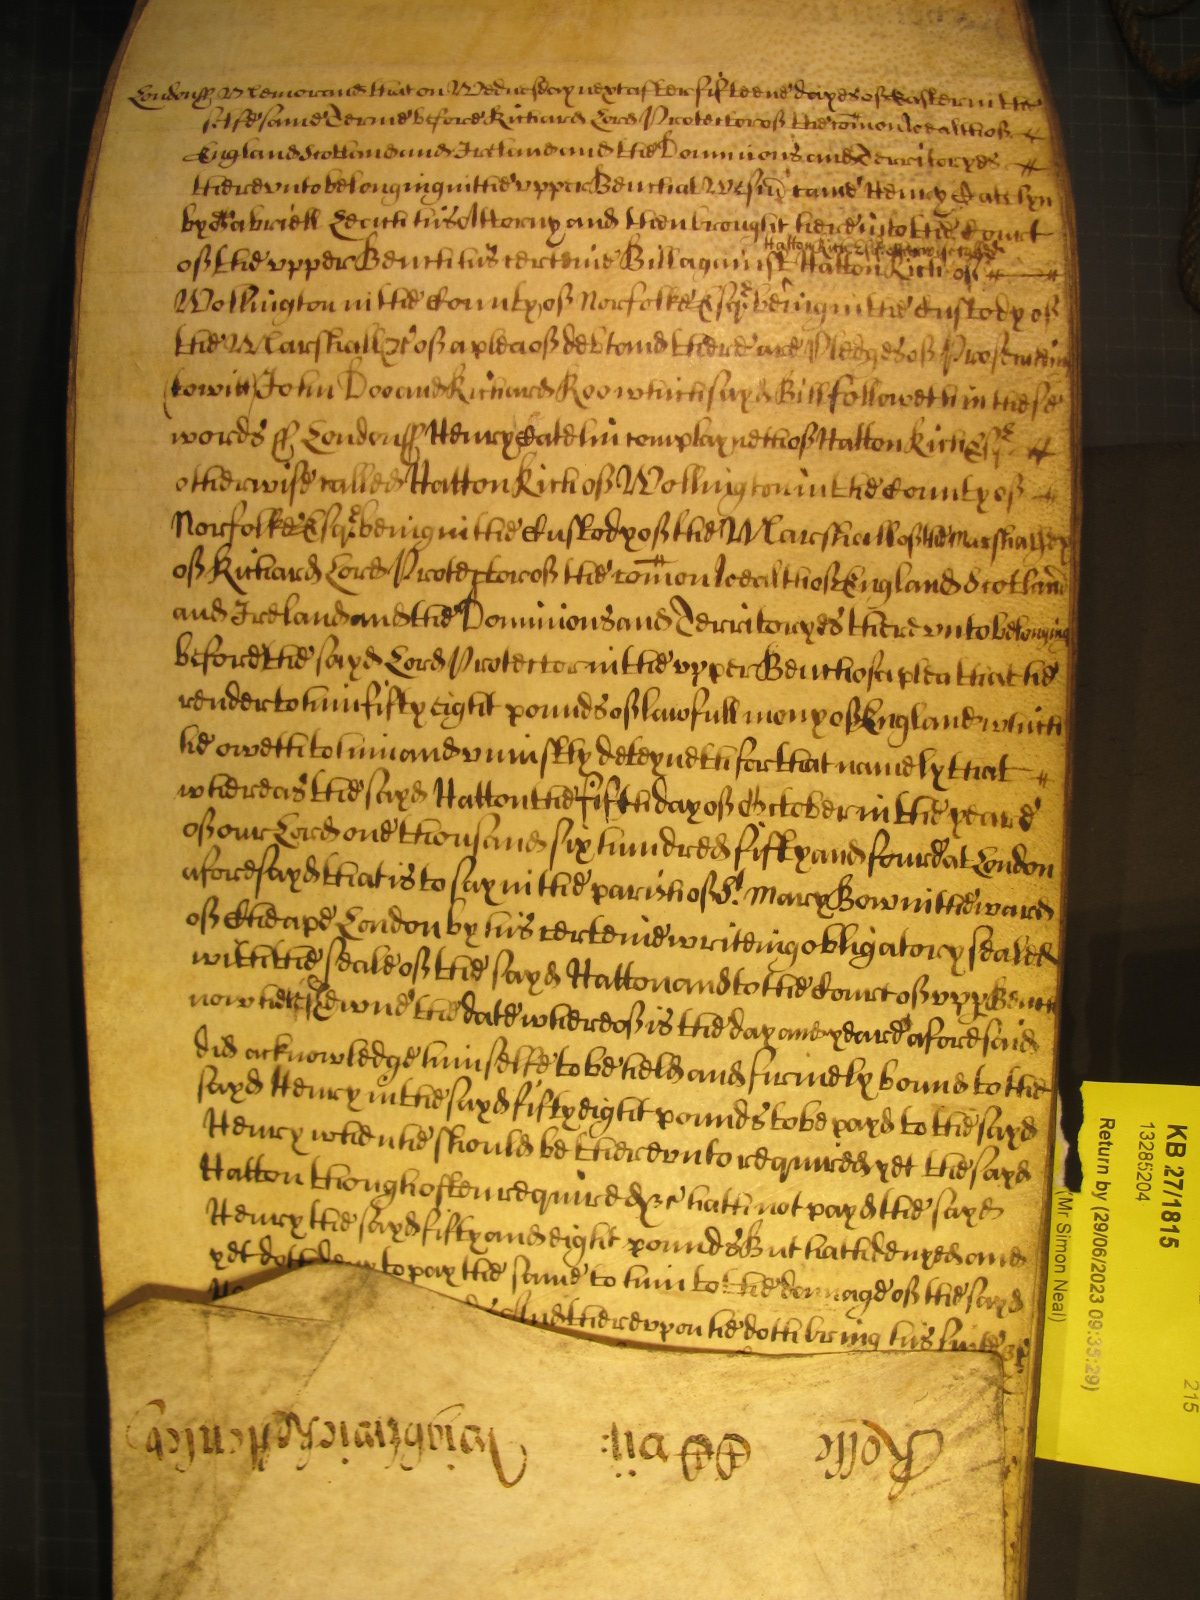 London ss Memorand that on Wednesday next after fifteene dayes of Easter in the
selfe same Terme before Richard Lord Protector of the comon wealth of
England Scotland and Ireland and the Dominions and Territoryes
thereunto belonging in the upper Bench at Westm came Henry Catelyn
by Gabriell Leech his Attorny and then brought here into the Court
of the upper Bench his certeine Bill against Hatton Rich of
Wollington in the County of Norfolke Esqr being in the Custody of
the Marshall &c of a plea of debt and there are Pledges of Prosecuteing
(to witt) John Doo and Richard Roo which sayd Bill followeth in these
words ss London ss Henry Catelin complayneth of Hatton Rich Esqr
otherwise called Hatton Rich of Wollington in the County of
Norfolke Esqr being in the Custody of the Marshall of the Marshalsey
of Richard Lord Protector of the comon wealth of England Scotland
and Ireland and the Dominions and Territoryes thereunto belonging
before the sayd Lord Protector in the upper Bench of a plea that he
render to him fifty eight pounds of lawfull mony of England which
he oweth to him and uniustly deteyneth for that namely that
whereas the sayd Hatton the fifth day of October in the yeare
of our Lord one thousand six hundred fifty and foure at London
aforesayd that is to say in the parish of St. Mary Bow in the ward
of Cheape London by his certeine writeing obligatory sealed
with the seale of the sayd Hatton and to the Court of upp Bench
now here shewne the date whereof is the day and yeare aforesaid
did acknowledge himselfe to be held and firmely bound to the
sayd Henry in the sayd fifty eight pounds to be payd to the sayd
Henry when he should be thereunto required yet the sayd
Hatton though often required &c hath not payd the sayd
Henry the sayd fifty and eight pounds But hath denyed and
yet doth deny to pay the same to him to the damage of the sayd
And thereupon he doth bring his suite &c
Rolle CC vii
KB 27/1815
13285204
Return by (29/06/2023 09:35:29)
(Mr Simon Neal)
215